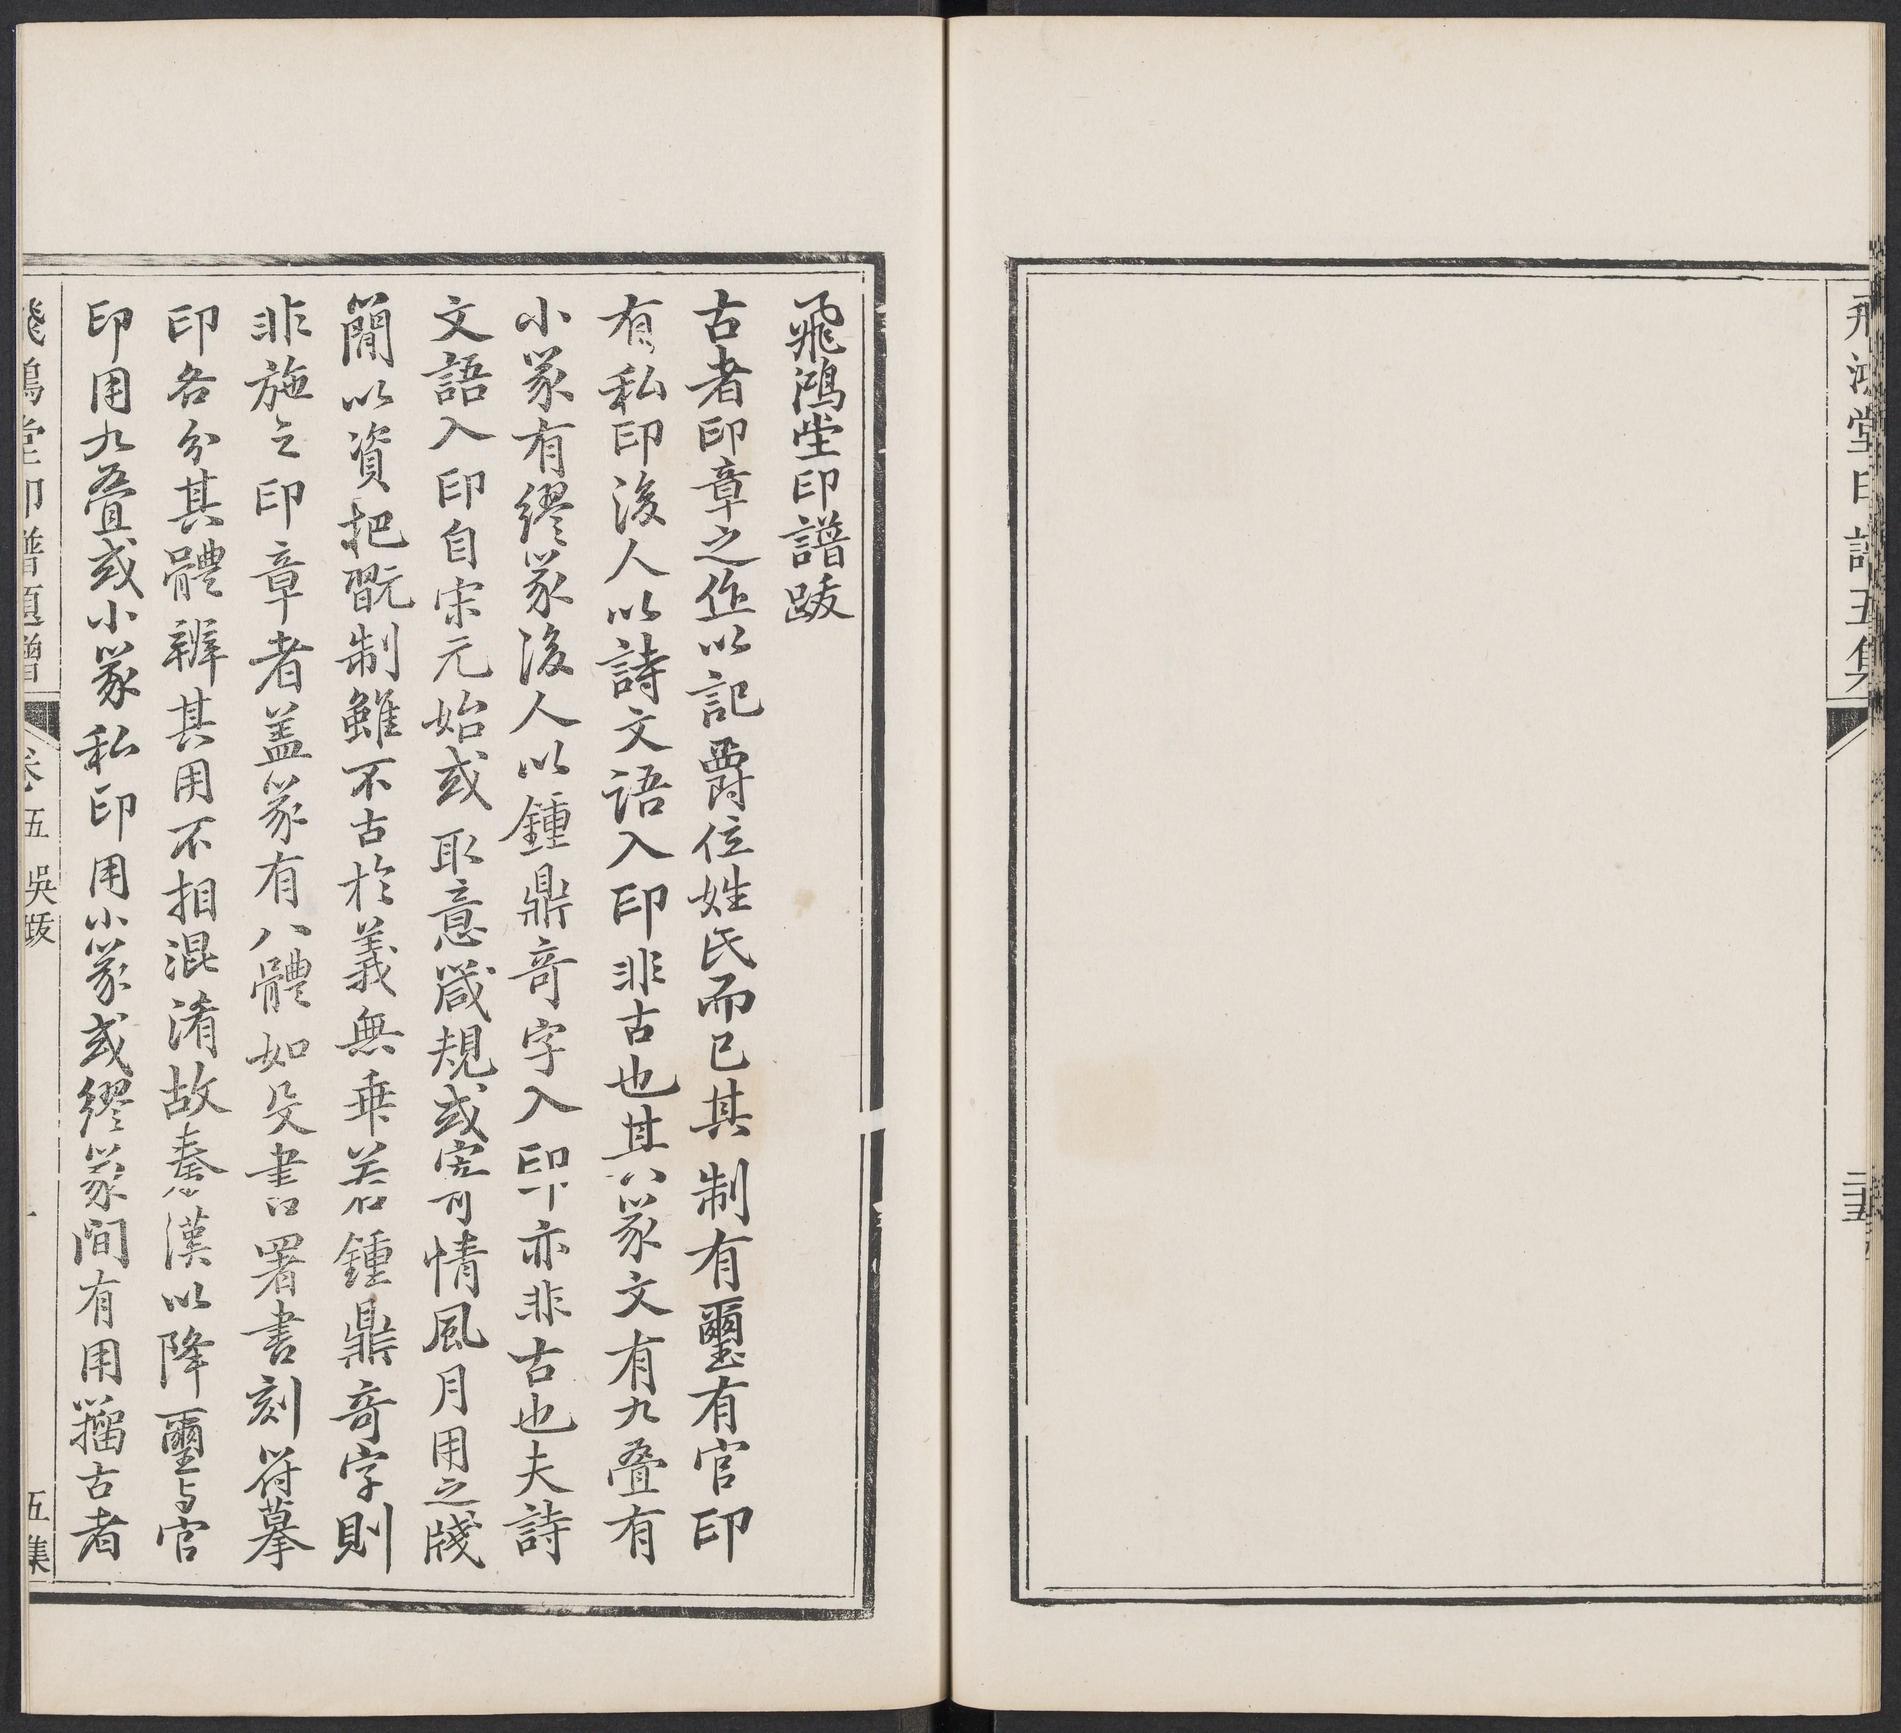 飛鴻堂印譜五集
二五
飛鴻堂印譜跋
古者印章之作以記爵位姓氏而已其制有璽有官印
有私印後人以詩文語入印非古也其篆文有九疊有
小篆有繆篆後人以鍾鼎奇字入印亦非古也夫詩
文語入印自宋元始或取意箴規或寄情風月用之牋
簡以資把翫制雖不古於義無乖若鍾鼎奇字則
非施之印章者盖篆有八體如殳書署書刻符摹
印各分其體辨其用不相混淆故秦漢以降璽与官
印用九疊或小篆私印用小篆或繆篆間有用籀古者
飛鴻堂印譜題贈
卷五 吳跋
一
五集